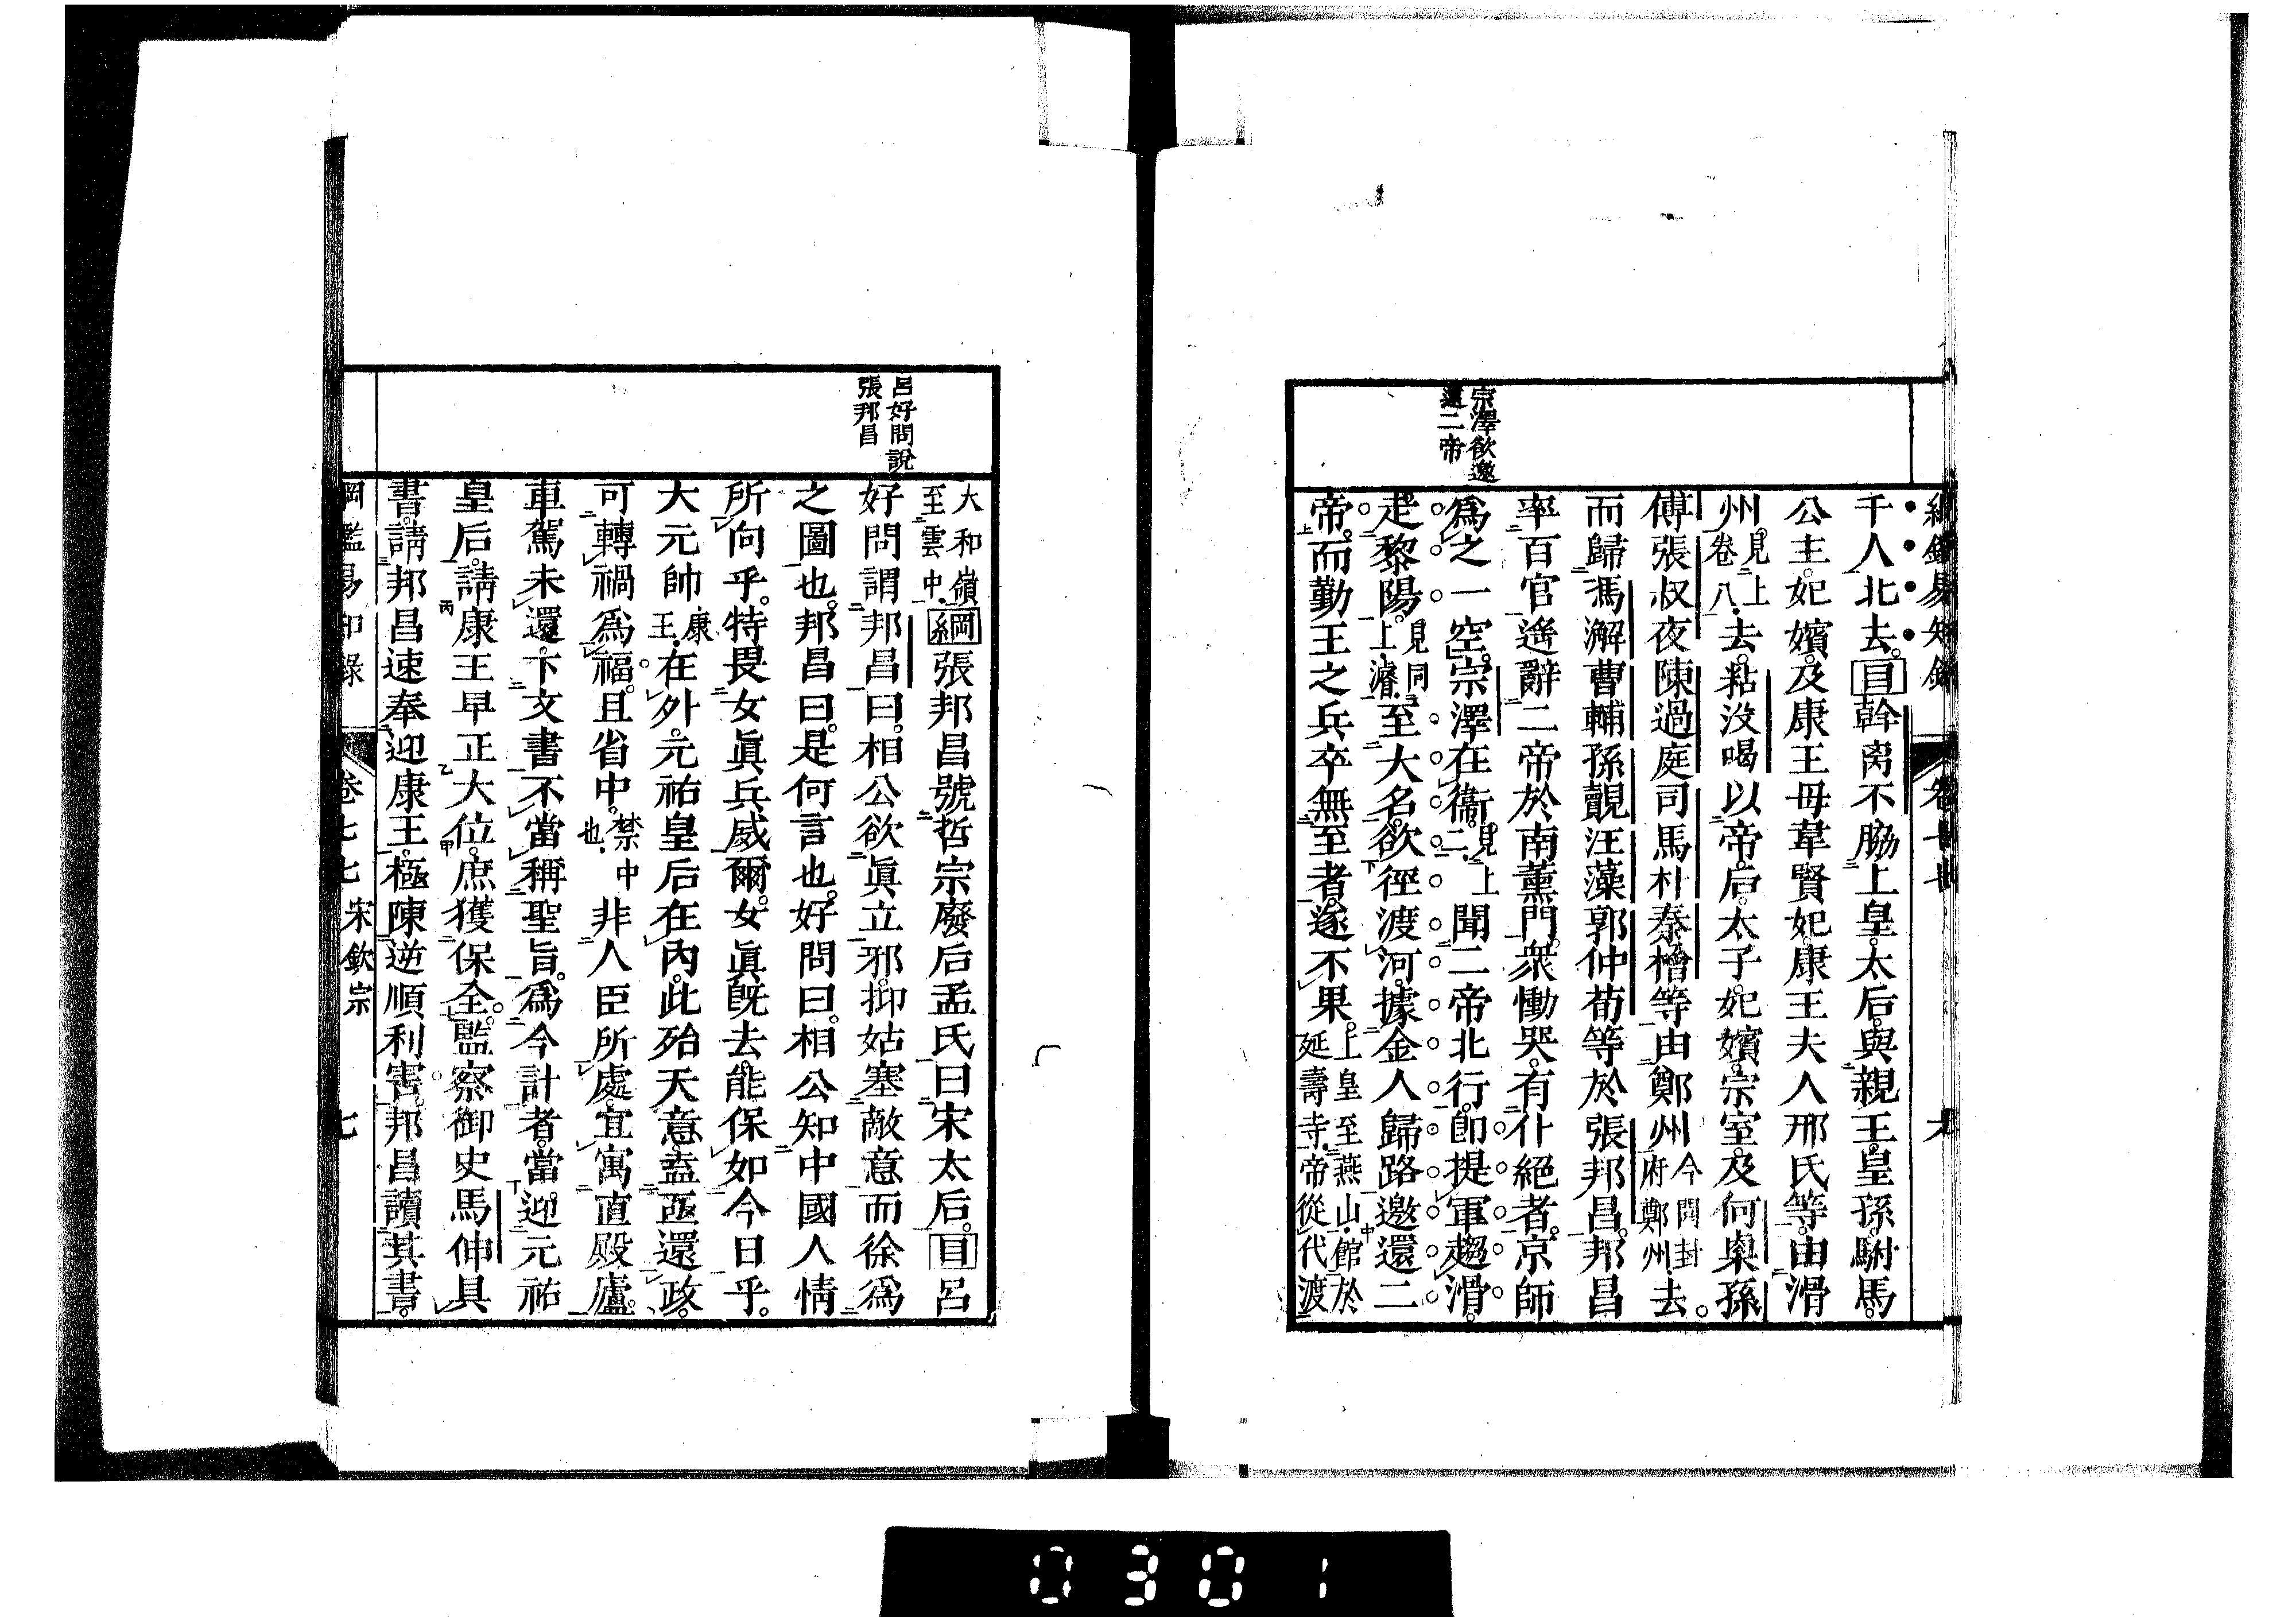 宗澤欲邀
還二帝
綱鑑易知錄 卷七十七
千人北去。目斡离不脇上皇太后與親王皇孫駙馬
公主妃嬪及康王母韋賢妃康王夫人邢氏等由滑
州見上卷八去。粘沒喝以帝后太子妃嬪宗室及何㮚孫
傅張叔夜陳過庭司馬朴秦檜等由鄭州今開封府鄭州去。
而歸馮澥曹輔孫覿汪藻郭仲荀等於張邦昌。邦昌
率百官遙辭二帝於南薰門。衆慟哭。有仆絕者。京師
爲之一空。宗澤在衞見上二聞二帝北行。卽提軍趨滑。
走黎陽。見同上濬至大名。欲徑渡河。據金人歸路邀還二
帝。而勤王之兵卒無至者。遂不果。上皇至燕山館於延壽寺帝從代渡
呂好問說
張邦昌
大和嶺至雲中。綱張邦昌號哲宗廢后孟氏曰宋太后。目呂
好問謂邦昌曰。相公欲眞立邪。抑姑塞敵意而徐爲
之圖也。邦昌曰。是何言也。好問曰。相公知中國人情
所向乎。特畏女眞兵威爾。女眞旣去。能保如今日乎。
大元帥康王在外。元祐皇后在內。此殆天意。盍亟還政。
可轉禍爲福。且省中禁中也非人臣所處。宜寓直殿廬。
車駕未還。下文書不當稱聖旨。爲今計者。當迎元祐
皇后。請康王早正大位。庶獲保全。監察御史馬伸具
書。請邦昌速奉迎康王。極陳逆順利害。邦昌讀其書。
綱鑑易知錄 卷七七 宋欽宗 七
0301